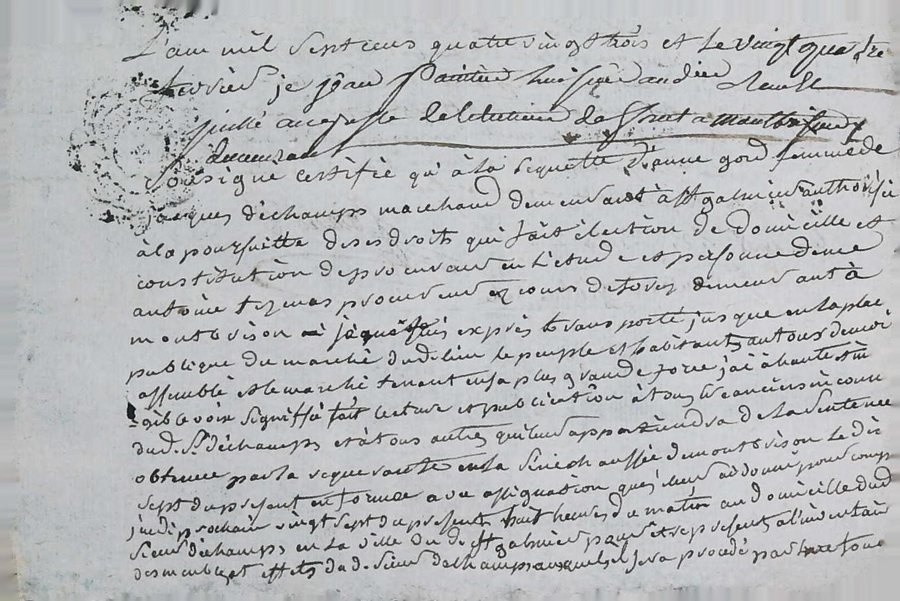 L'an mil sept cens quatre vingt trois et le vingt quatre
fevrier je jean huissier audien
demeurant
soussigné certifie qu'à la requette d'anne gord femme de
jacques déchamps marchand demeurant à st galmier authorisée
à la poursuitte de ses droits qui fait élection de domicille et
constitution de procureur en l'etude et personne de me
antoine procureur ez cours de forez demeurant à
montbrison je me suis exprès transporté jusque en la place
publique du marché dudit lieu le peuple et habitants autour de moi
assemblé et le marché tenant en sa plus grande force j'ai à haute et in
-tgible voix signiffié fait lecture et publication à tous les anciers inconu
dud. sr. déchamps et à tous autres qu'il appartiendra de la sentence
obtenue par la requerante en la sénéchaussée de montbrison le dix
sept du present en forme avec assignation que j'ai donné pour comp
jeudi prochain vingt sept du present huit heures du matin au domicille dud
sieur déchamps en la ville du d. st galmier pour etre present à l'inventaire
des meubles et effets dud. sieur dechamps auquel il sera procédé par